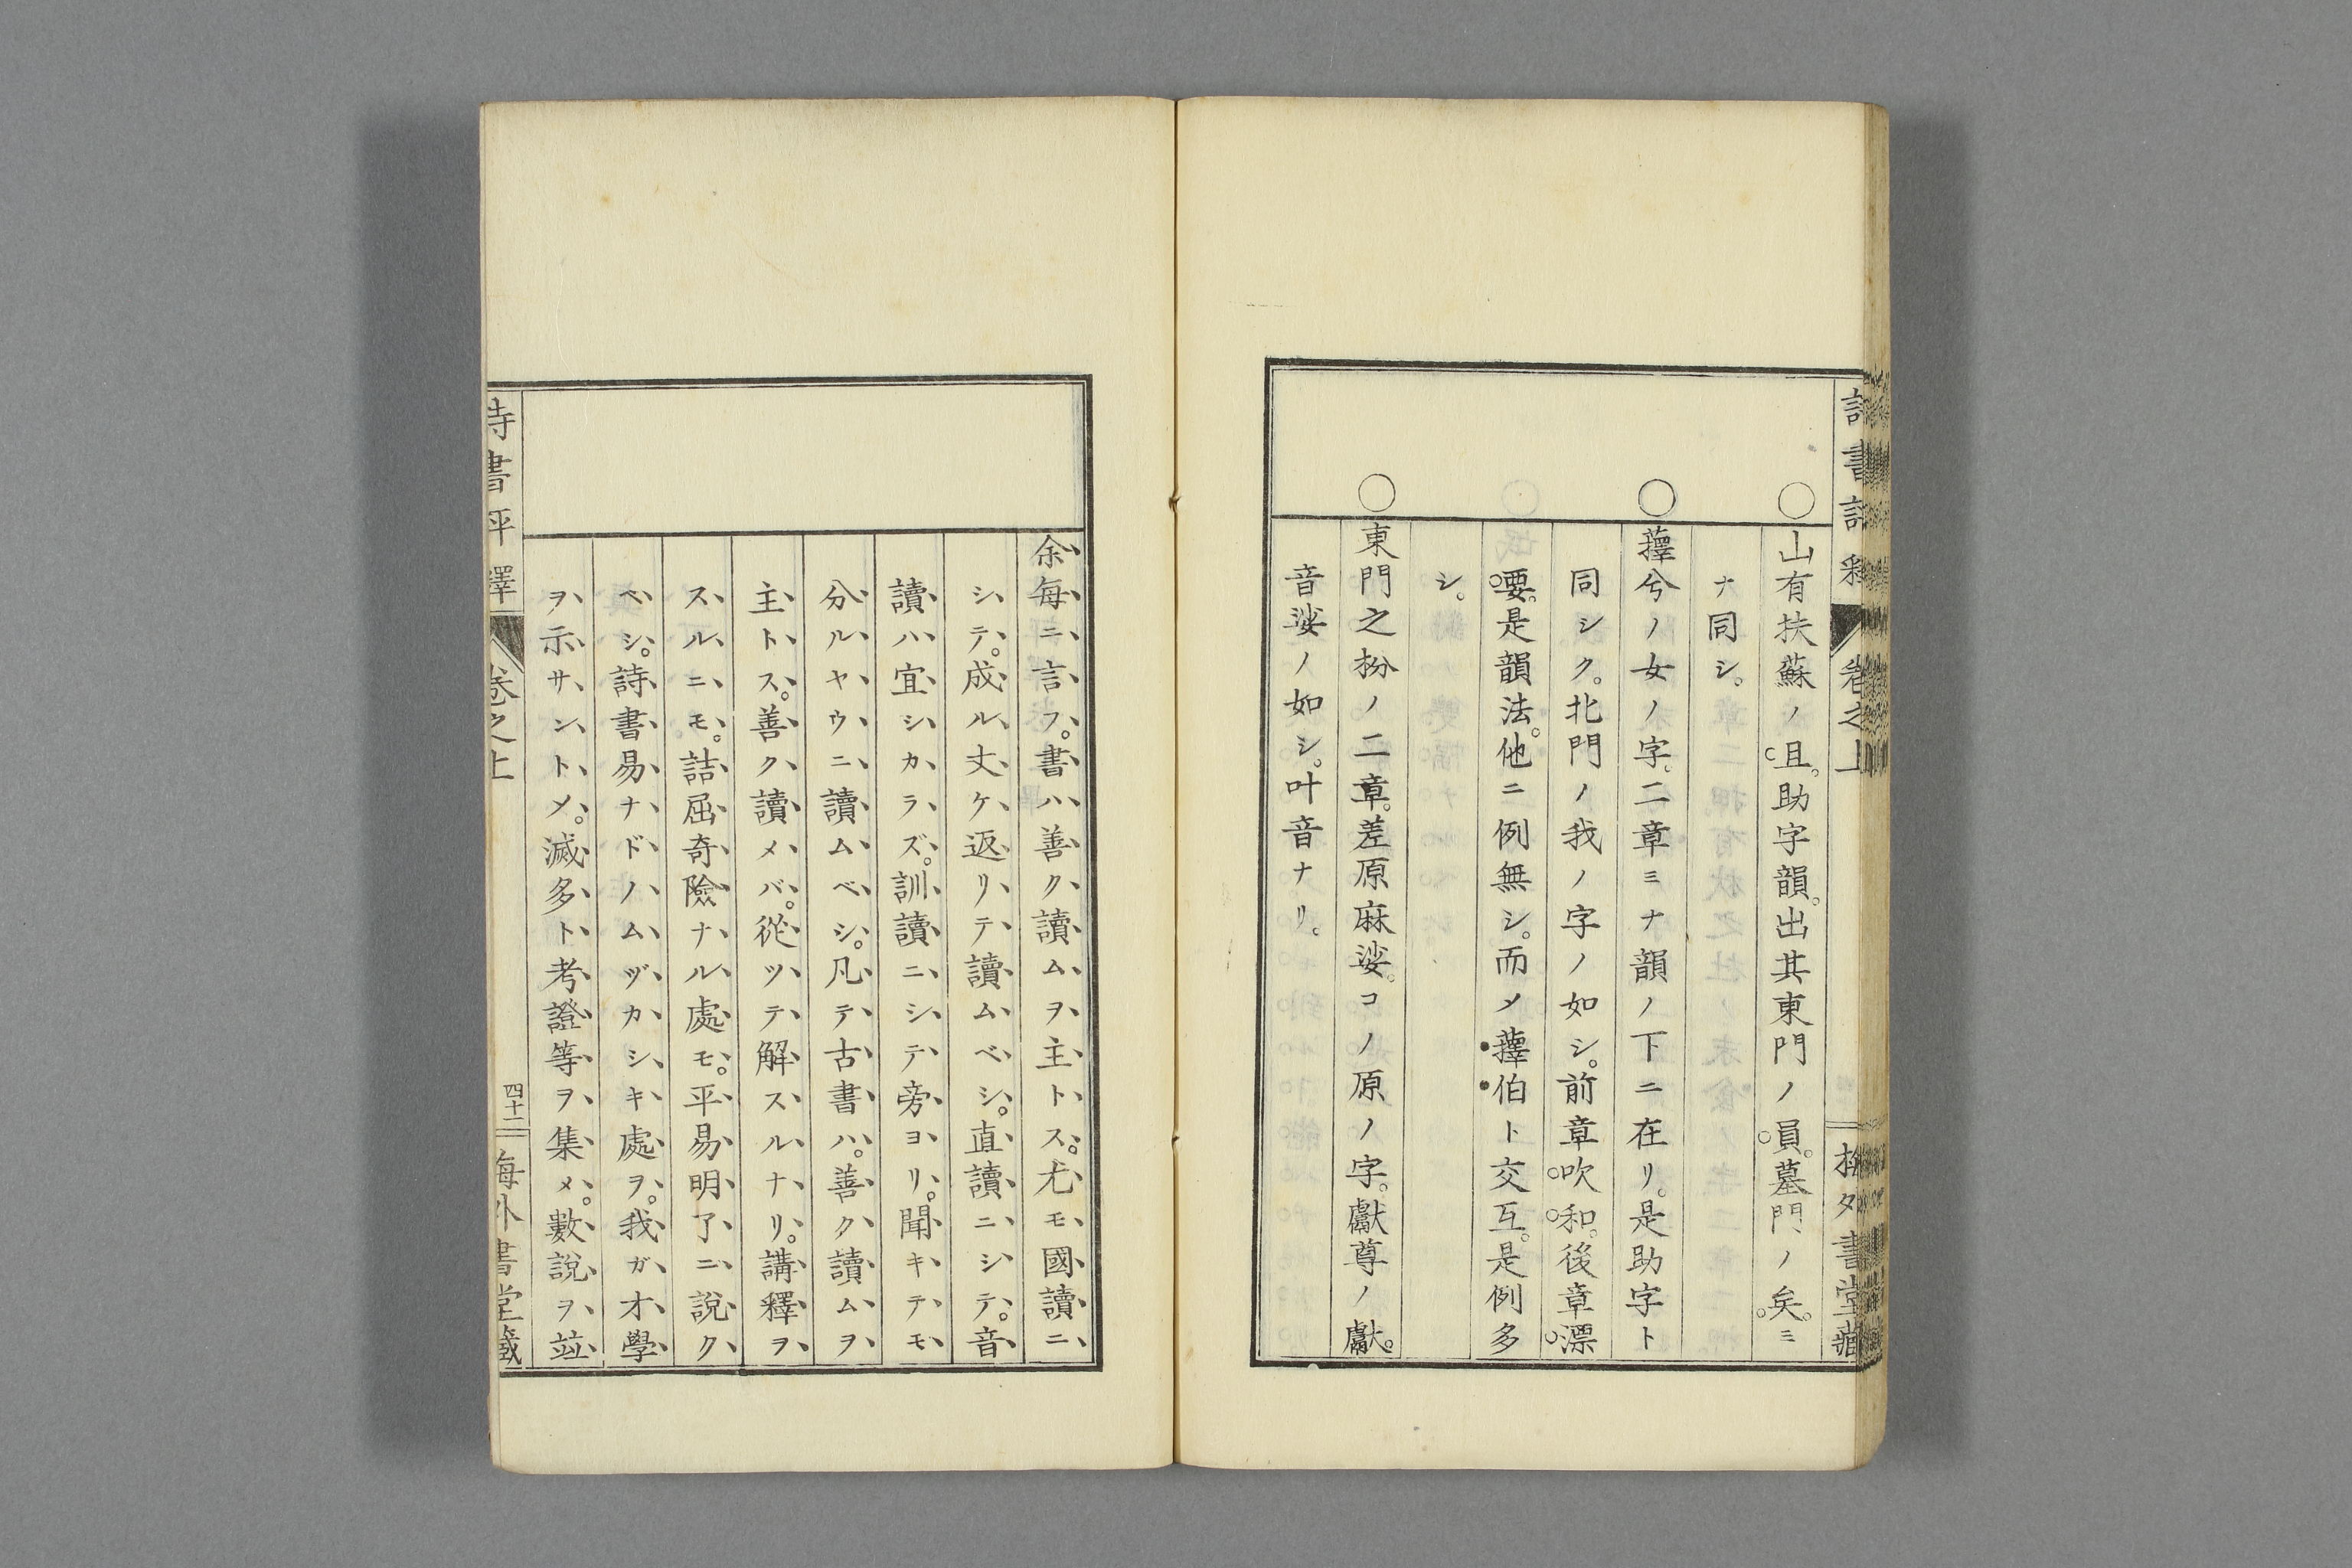 ○山有扶蘇ノ且。助字韻。出其東門ノ員。墓門ノ矣。ミ
ナ同シ。
○蘀兮ノ女ノ字。二章ミナ韻ノ下ニ在リ。是助字ト
同シク。北門ノ我ノ字ノ如シ。前章吹和。後章漂
要。是韻法。他ニ例無シ。而メ蘀伯ト交互。是例多
シ。
○東門之枌ノ二章。差原麻娑。コノ原ノ字。獻尊ノ獻。
音娑ノ如シ。叶音ナリ。
余每ニ言フ。書ハ善ク讀ムヲ主トス。尤モ國讀ニ
シテ。成ル丈ケ返リテ讀ムベシ。直讀ニシテ。音
讀ハ宜シカラズ。訓讀ニシテ旁ヨリ。聞キテモ
分ルヤウニ讀ムベシ。凡テ古書ハ。善ク讀ムヲ
主トス。善ク讀メバ。從ツテ解スルナリ。講釋ヲ
スルニモ。詰屈奇險ナル處モ。平易明了ニ說ク
ベシ。詩書易ナドノムヅカシキ處ヲ。我ガ才學
ヲ示サントメ。滅多ト考證等ヲ集メ。數說ヲ竝
詩書評釋 卷之上 四十二 每外書堂藏